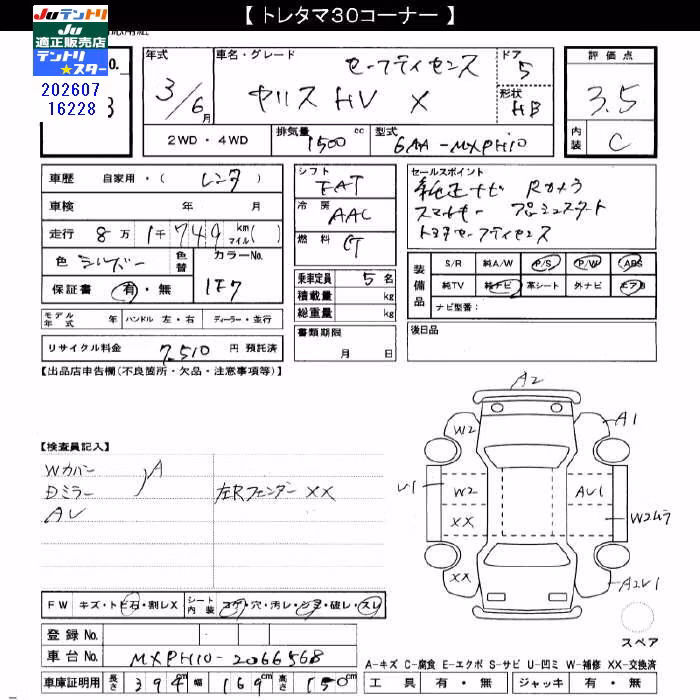 【 トレタマ30コーナー 】
Juテントリ
Ju
適正販売店
テントリ
★スター
202607
16228
年式
3/6月
車名・グレード
セーフティセンス
ヤリス HV X
ドア
5
形状
HB
評価点
3.5
内装
C
2WD・4WD
排気量
1500
cc
型式
6AA-MXPH10
車歴
自家用・( レンタ )
車検
年
月
走行
8万 1千 749
km
マイル( )
色
シルバー
色替
カラーNo.
1F7
保証書
有・無
モデル年式
年
ハンドル
左・右
ディーラー・並行
リサイクル料金
7,510
円 預託済
シフト
FAT
冷房
AAC
燃料
乗車定員
5
名
積載量
kg
総重量
kg
書類期限
月
日
セールスポイント
純正ナビ Rカメラ
スマートキー プッシュスタート
トヨタセーフティセンス
装備品
S/R
純A/W
P/S
P/W
ABS
純TV
純ナビ
革シート
外ナビ
エアB
ナビ型番:
後日品
【出品店申告欄(不良箇所・欠品・注意事項等)】
【検査員記入】
Wカバー
Dミラー
A
AU
左Rフェンダー XX
A2
A1
W2
U1
W2
XX
AU1
W2ムラ
XX
A2U1
スペア
FW
キズ・トビ石・割レX
シート内装
コゲ・穴・汚レ・シミ・破レ・スレ
登録 No.
車台 No.
MXPH10-2066568
車庫証明用
長さ
394
cm
幅
169
cm
高さ
150
cm
A-キズ C-腐食 E-エクボ S-サビ U-凹ミ W-補修 XX-交換済
工具
有・無
ジャッキ
有・無